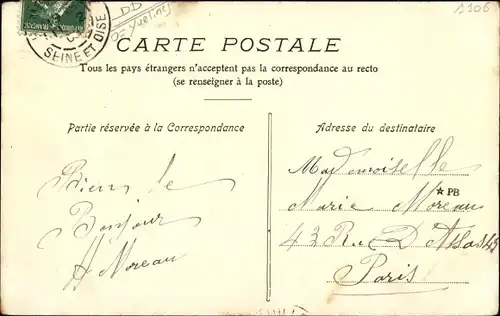 1106
DD
Yvelines
SEINE ET OISE
CARTE POSTALE
Tous les pays étrangers n'acceptent pas la correspondance au recto
(se renseigner à la poste)
Partie réservée à la Correspondance
Adresse du destinataire
Bien le
Bonjour
H Moreau
Mademoiselle
Marie Moreau
★PB
43 Rue D'Assas 43
Paris